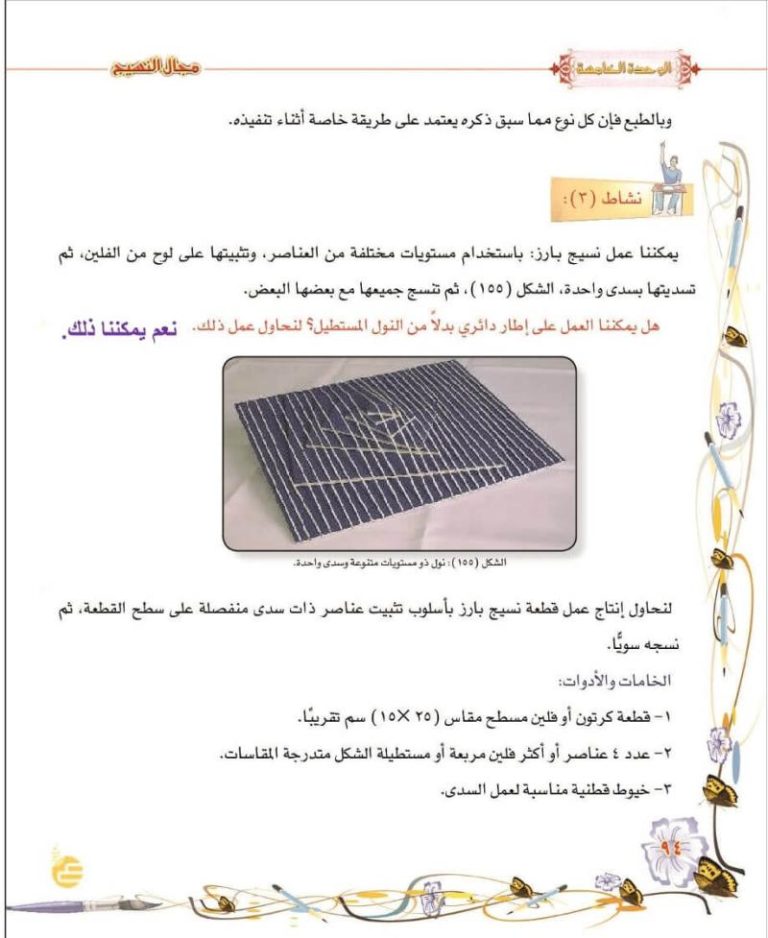 الوحدة الخامسة
مجال النسيج
وبالطبع فإن كل نوع مما سبق ذكره يعتمد على طريقة خاصة أثناء تنفيذه.
نشاط (٣):
يمكننا عمل نسيج بارز: باستخدام مستويات مختلفة من العناصر، وتثبيتها على لوح من الفلين، ثم
تسديتها بسدى واحدة، الشكل (١٥٥)، ثم تنسج جميعها مع بعضها البعض.
هل يمكننا العمل على إطار دائري بدلاً من النول المستطيل؟ لنحاول عمل ذلك. نعم يمكننا ذلك.
الشكل (١٥٥): نول ذو مستويات متنوعة وسدى واحدة.
لنحاول إنتاج عمل قطعة نسيج بارز بأسلوب تثبيت عناصر ذات سدى منفصلة على سطح القطعة، ثم
نسجه سويًّا.
الخامات والأدوات:
١- قطعة كرتون أو فلين مسطح مقاس (٢٥ ×١٥) سم تقريبًا.
٢- عدد ٤ عناصر أو أكثر فلين مربعة أو مستطيلة الشكل متدرجة المقاسات.
٣- خيوط قطنية مناسبة لعمل السدى.
٩٤